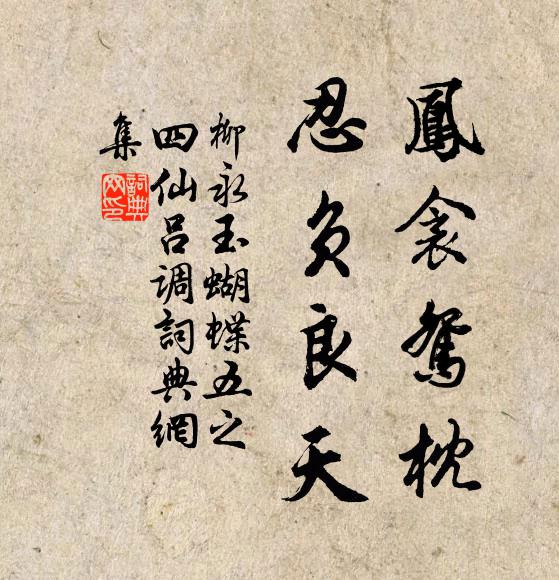 鳳衾鴛枕
忍負良天
柳永玉蝴蝶五之
四仙呂調詞典網
集
詞典网印